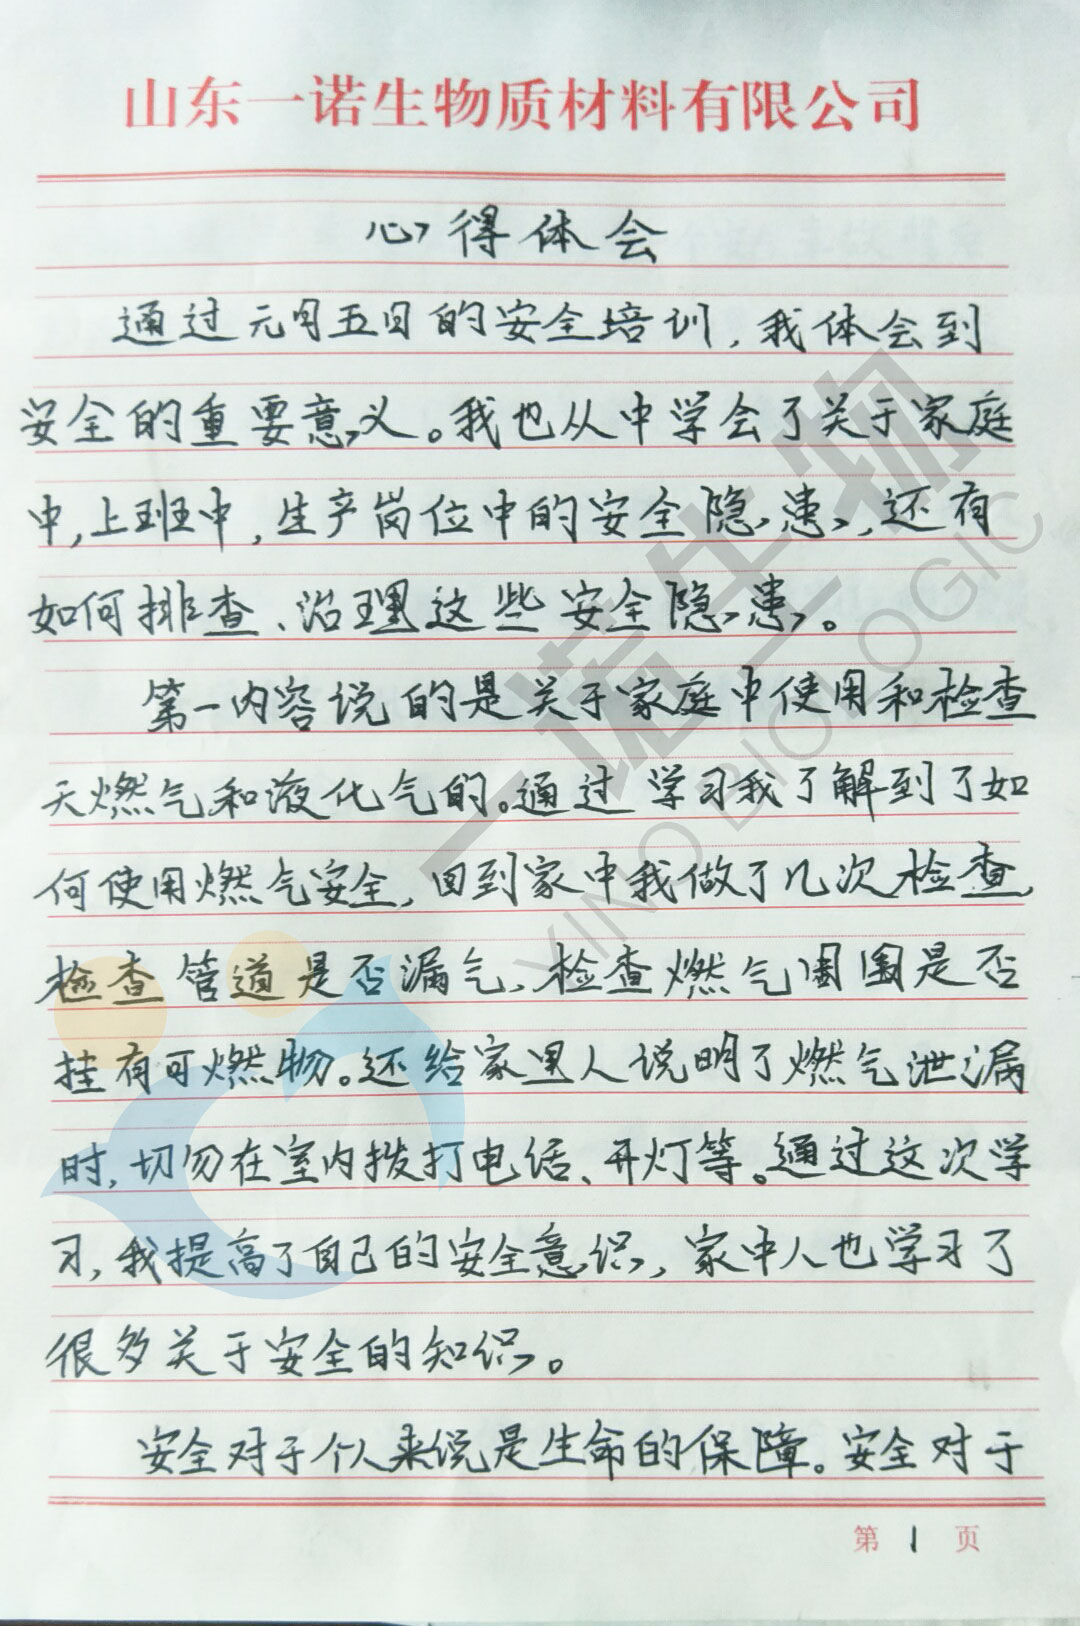 山东一诺生物质材料有限公司
心得体会
通过元月五日的安全培训，我体会到
安全的重要意义。我也从中学会了关于家庭
中，上班中，生产岗位中的安全隐患，还有
如何排查、治理这些安全隐患。
第一内容说的是关于家庭中使用和检查
天燃气和液化气的。通过学习我了解到了如
何使用燃气安全，回到家中我做了几次检查，
检查管道是否漏气、检查燃气周围是否
挂有可燃物。还给家里人说明了燃气泄漏
时，切勿在室内拨打电话、开灯等。通过这次学
习，我提高了自己的安全意识，家中人也学习了
很多关于安全的知识。
安全对于个人来说是生命的保障。安全对于
第1页
一诺生物
YINO BIOLOGIC